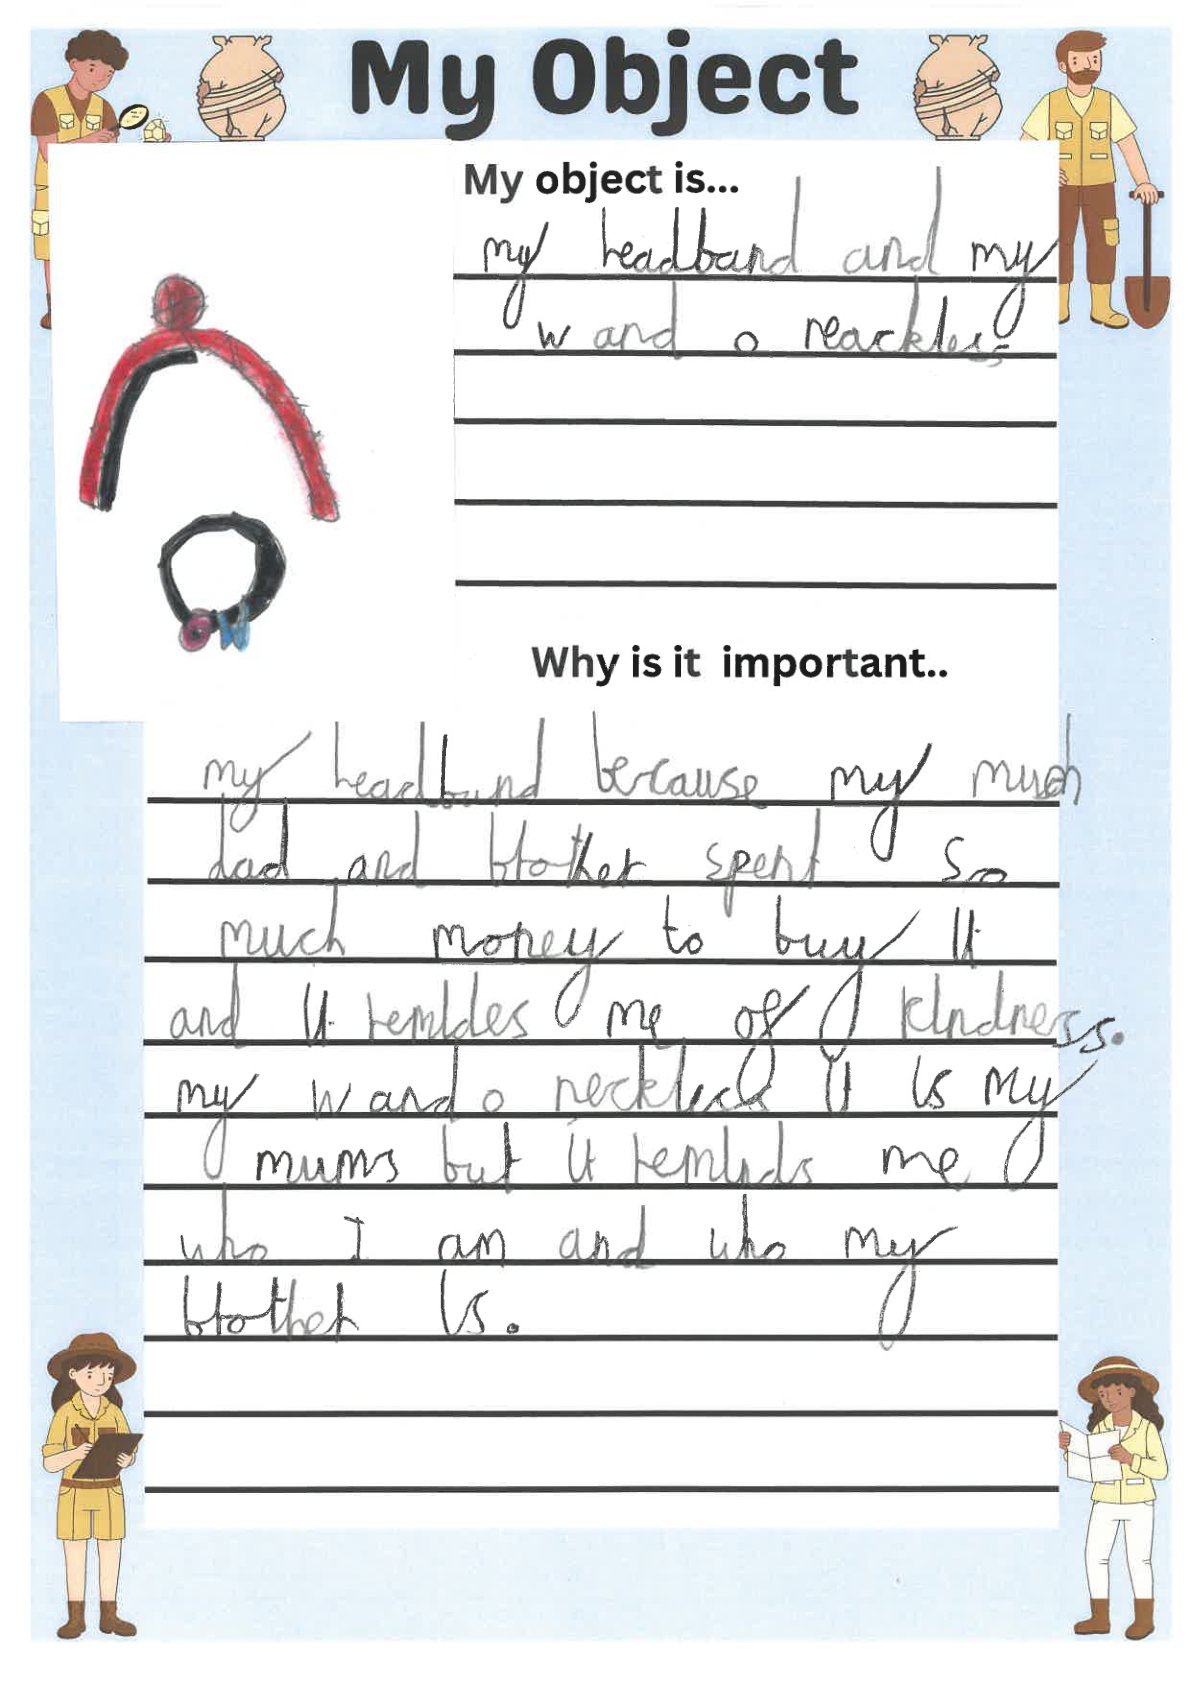 My Object
My object is...
my headband and my
w and o neackless
Why is it important..
my headband because my
dad and brother spent so
much money to buy it
and it remides me of kindness.
my w and o it is my
mums but it reminds me
who I am and who my
brother is.